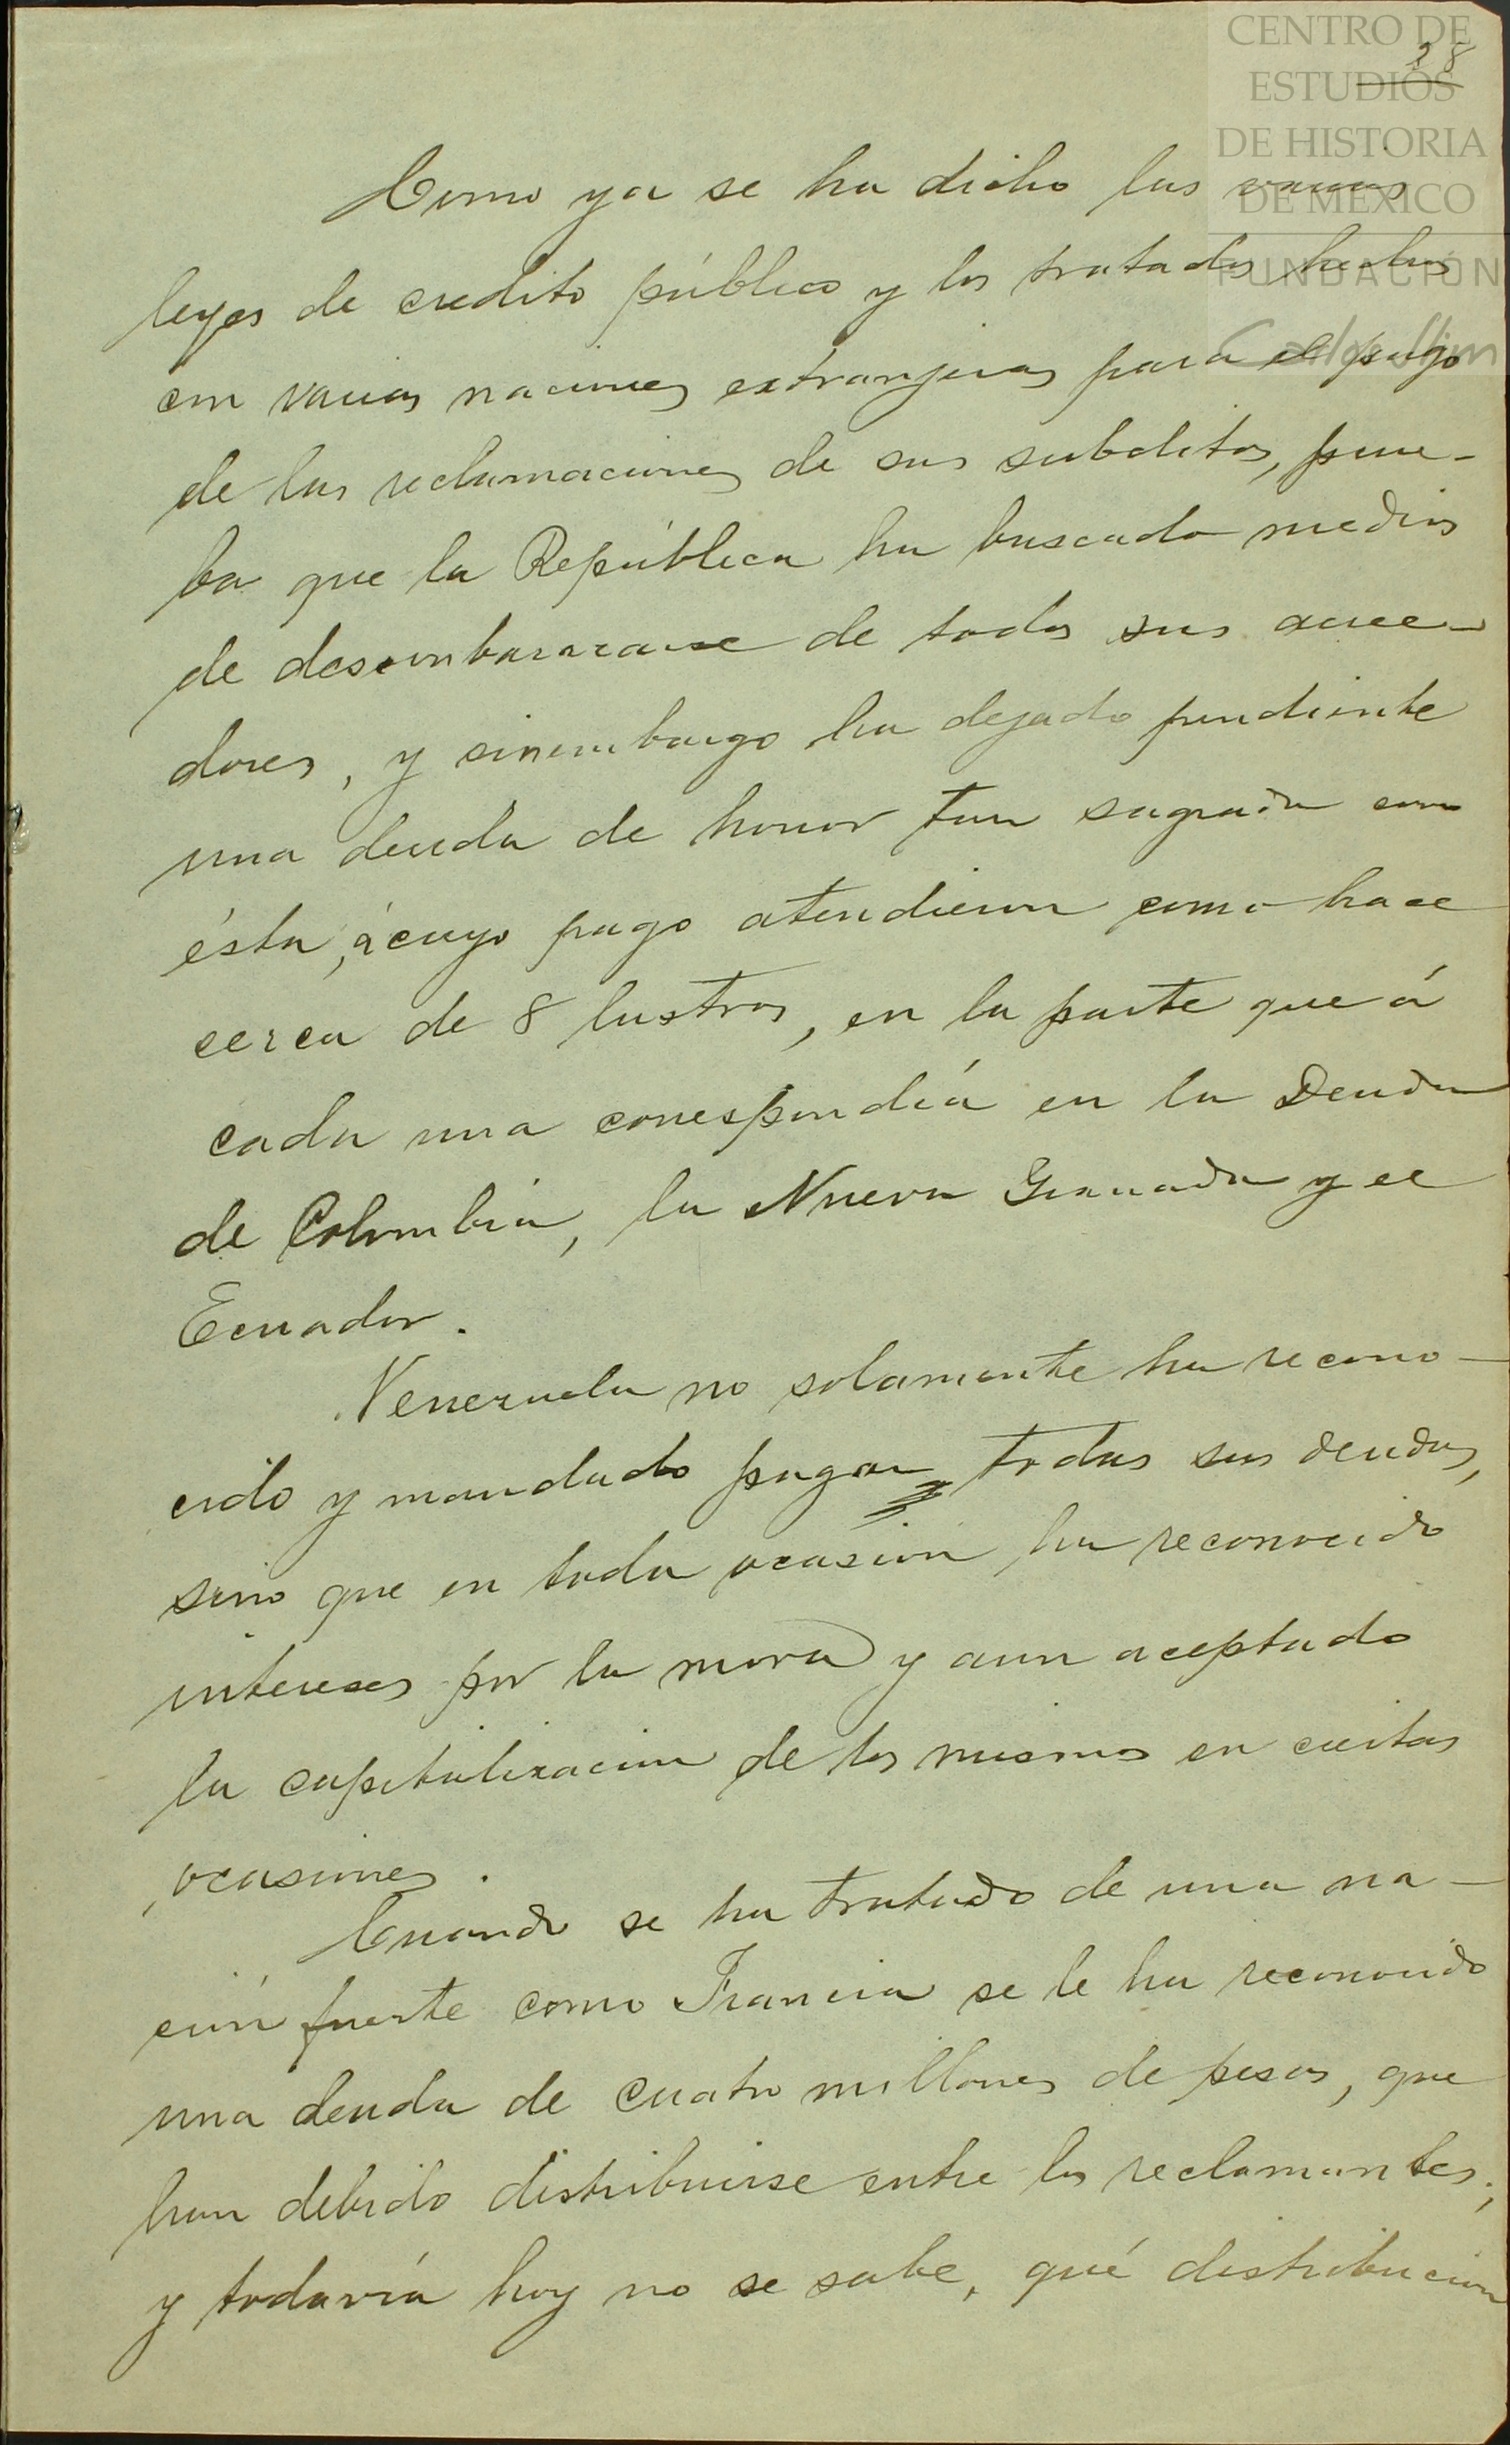 CENTRO DE
ESTUDIOS
DE HISTORIA
DE MÉXICO
FUNDACIÓN
Carlos Slim
28
Como ya se ha dicho las varias
leyes de credito público y los tratados hechos
con varias naciones extranjeras para el pago
de las reclamaciones de sus subditos, prue-
ba que la República ha buscado medios
de desembarazarse de todos sus acree-
dores, y sinembargo ha dejado pendiente
una deuda de honor tan sagrada como
ésta, á cuyo pago atendieron como hace
cerca de 8 lustros, en la parte que á
cada una correspondía en la Deuda
de Colombia, la Nueva Granada y el
Ecuador.
Venezuela no solamente ha recono-
cido y mandado pagar todas sus deudas,
sino que en toda ocasión ha reconocido
intereses por la mora y aun aceptado
la capitalizacion de los mismos en ciertas
ocasiones.
Cuando se ha tratado de una na-
ción fuerte como Francia se le ha reconocido
una deuda de cuatro millones de pesos, que
han debido distribuirse entre los reclamantes;
y todavía hoy no se sabe, qué distribucion